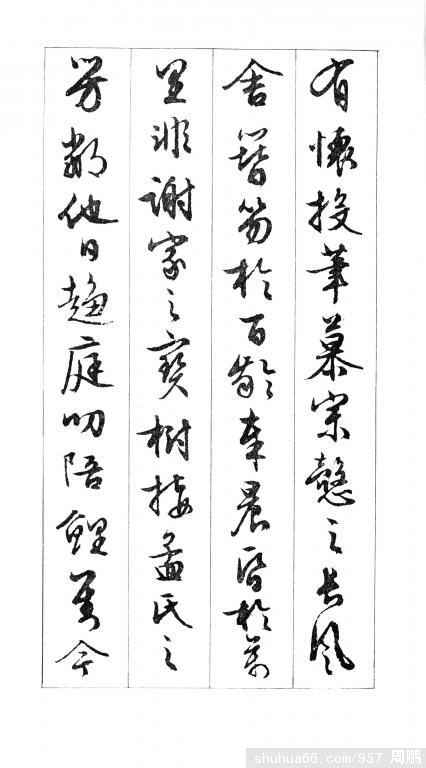 有懷投筆慕宗慤之長風
舍簪笏於百齡奉晨昏於萬
里非謝家之寶樹接孟氏之
芳鄰他日趨庭叨陪鯉對今
shuhua66.com/957 周鹏